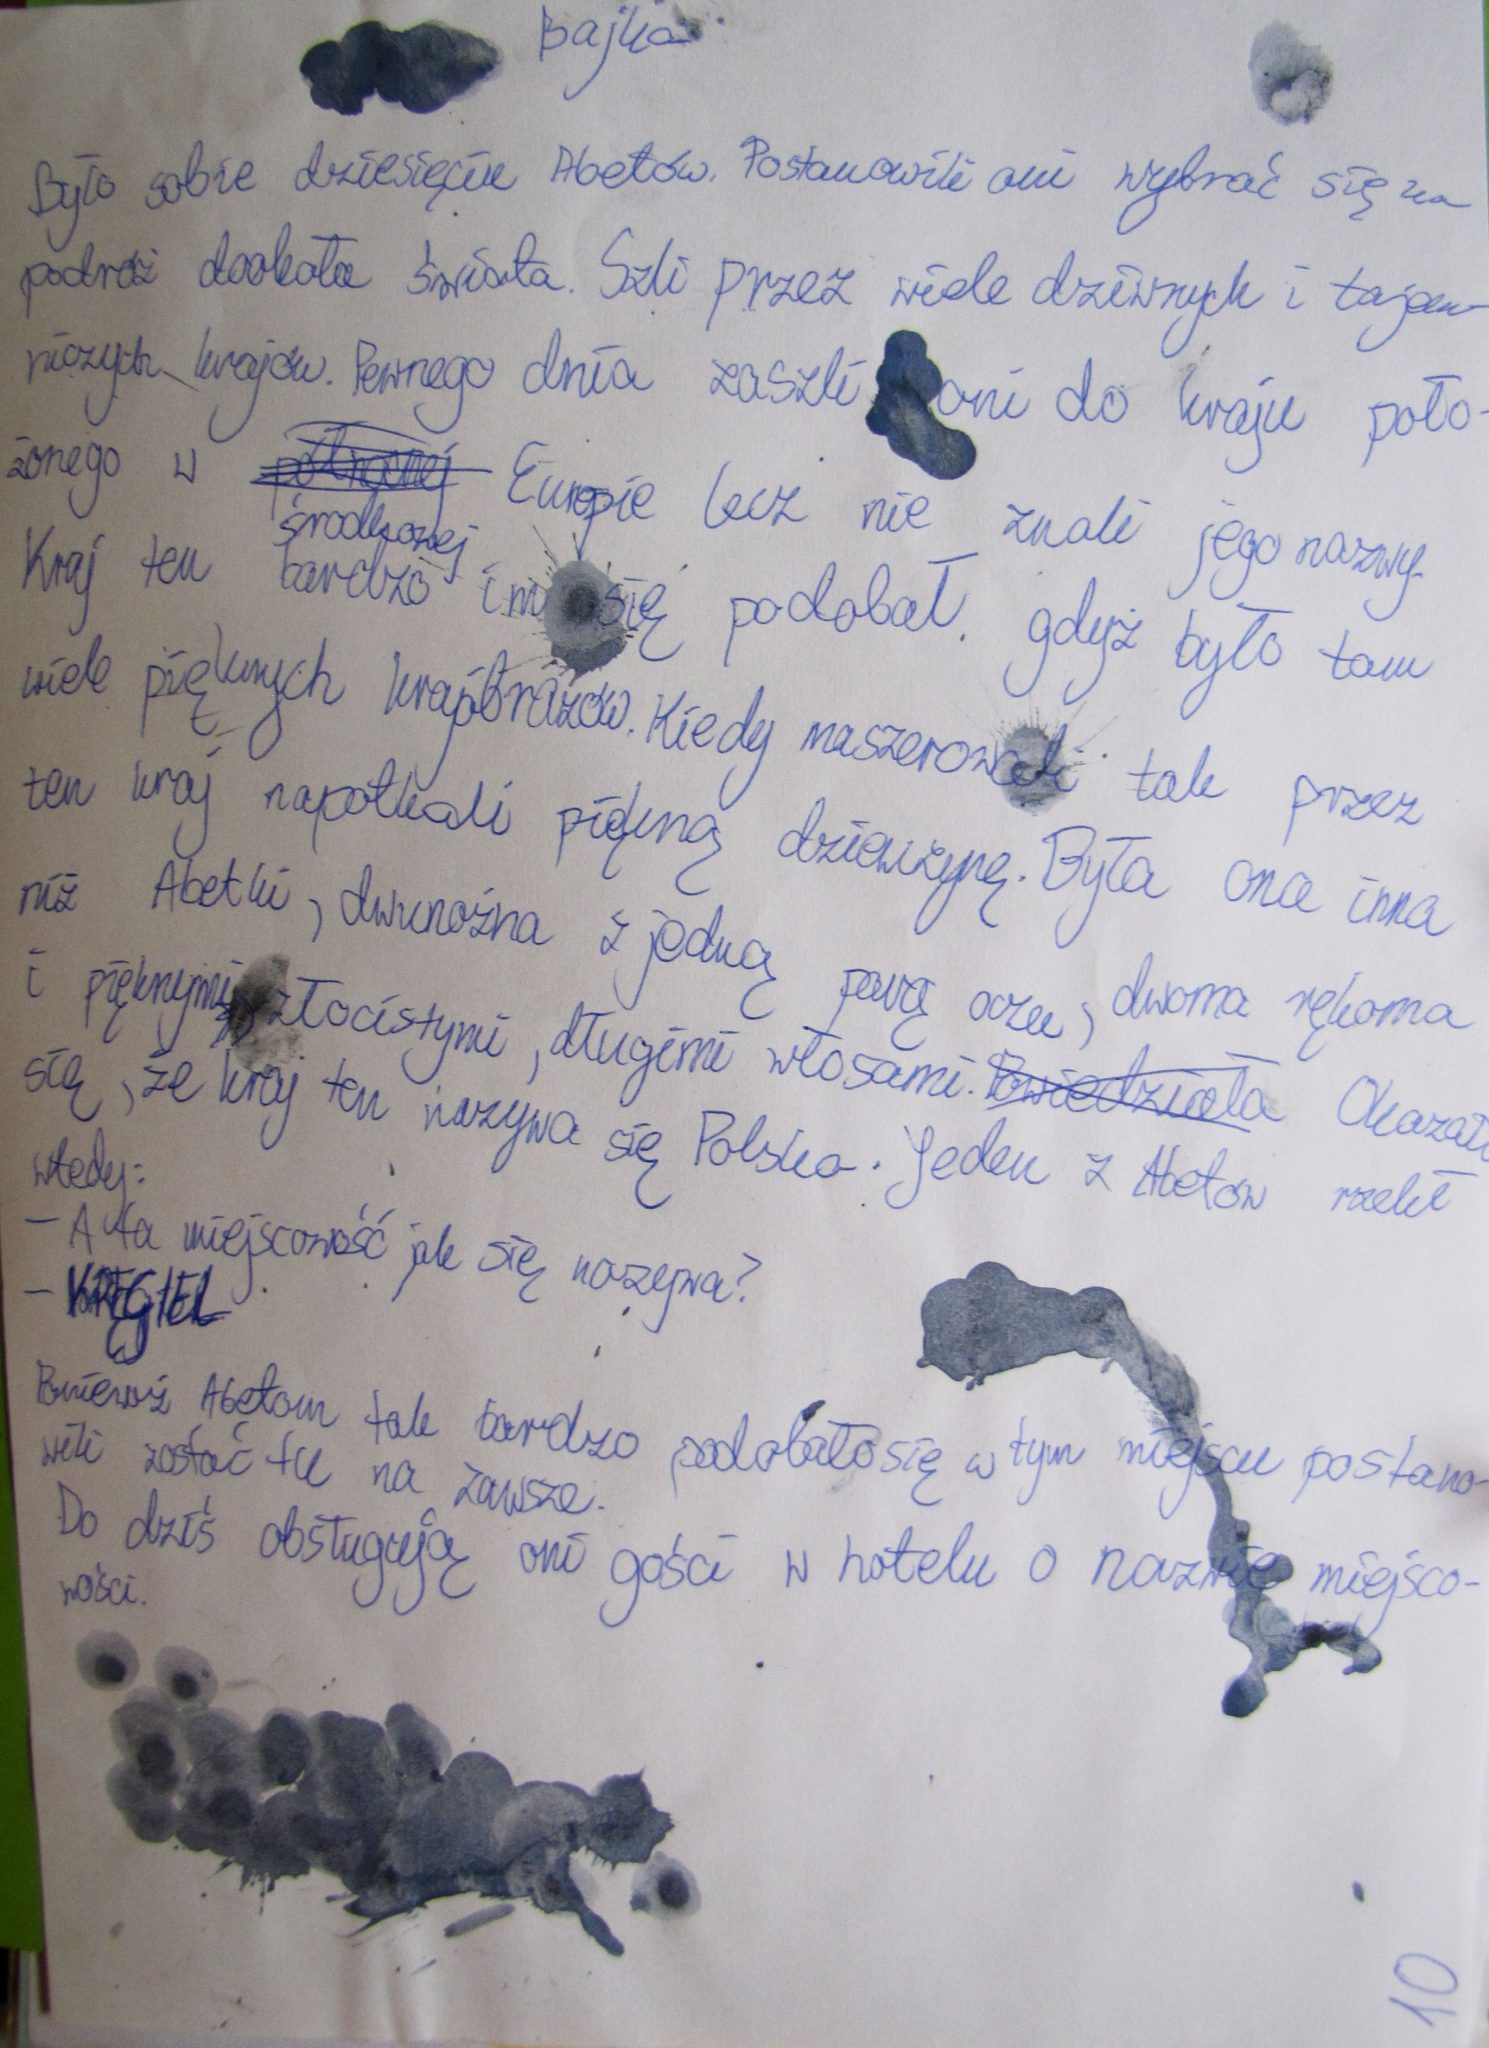 Bajka
Było sobie dziesięciu Abetów. Postanowili oni wybrać się na
podróż dookoła świata. Szli przez wiele dziwnych i tajem-
niczych krajów. Pewnego dnia zaszli oni do kraju poło-
żonego w północnej Europie lecz nie znali jego nazwy.
środkowej
Kraj ten bardzo im się podobał, gdyż było tam
wiele pięknych krajobrazów. Kiedy maszerowali tak przez
ten kraj napotkali piękną dziewczynę. Była ona inna
niż Abetki, dwunożna z jedną parą oczu, dwoma rękoma
i pięknymi złocistymi, długimi włosami. Powiedziała Okazało
się, że kraj ten nazywa się Polska. Jeden z Abetów rzekł
wtedy:
- A ta miejscowość jak się nazywa?
- KRĘGIEL
Ponieważ Abetom tak bardzo podobało się w tym miejscu postano-
wili zostać tu na zawsze.
Do dziś obsługują oni gości w hotelu o nazwie miejsco-
wości.
10